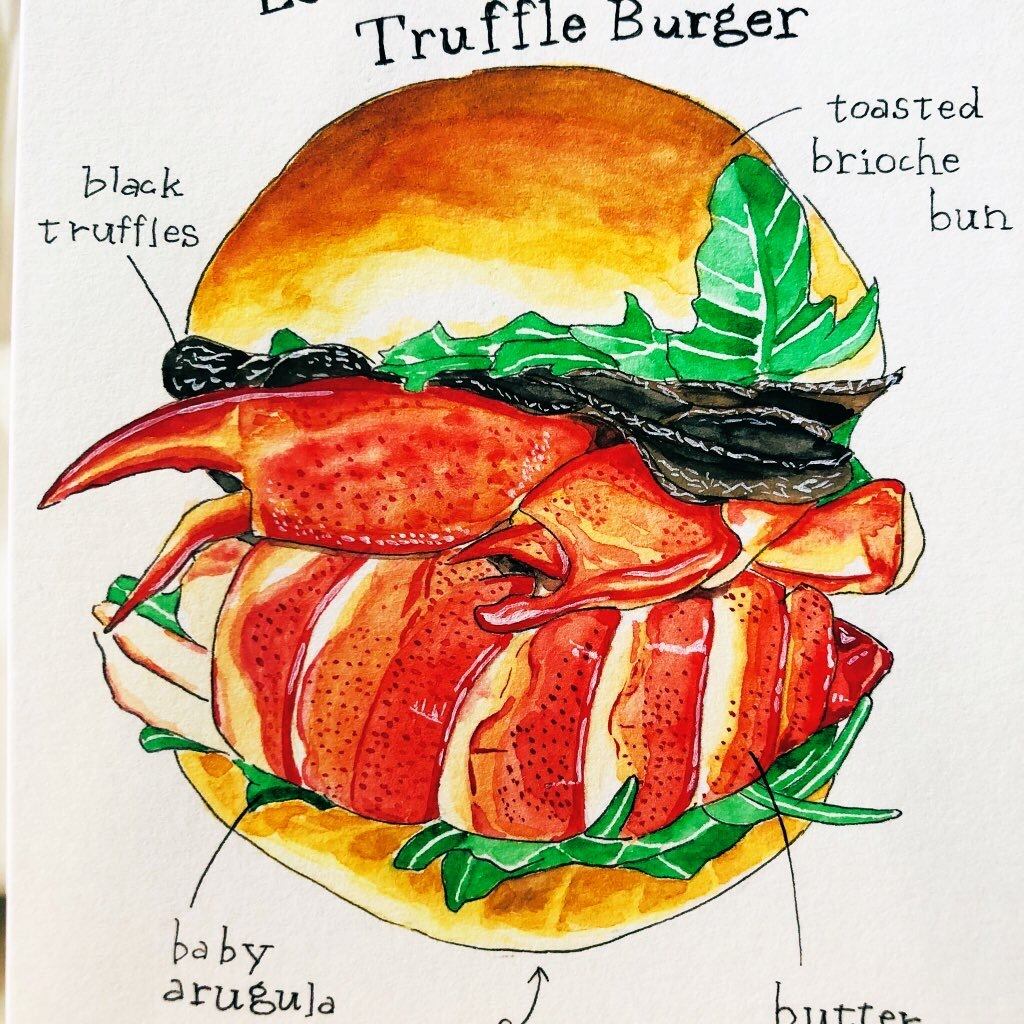 Truffle Burger
toasted
brioche
bun
black
truffles
baby
arugula
butter